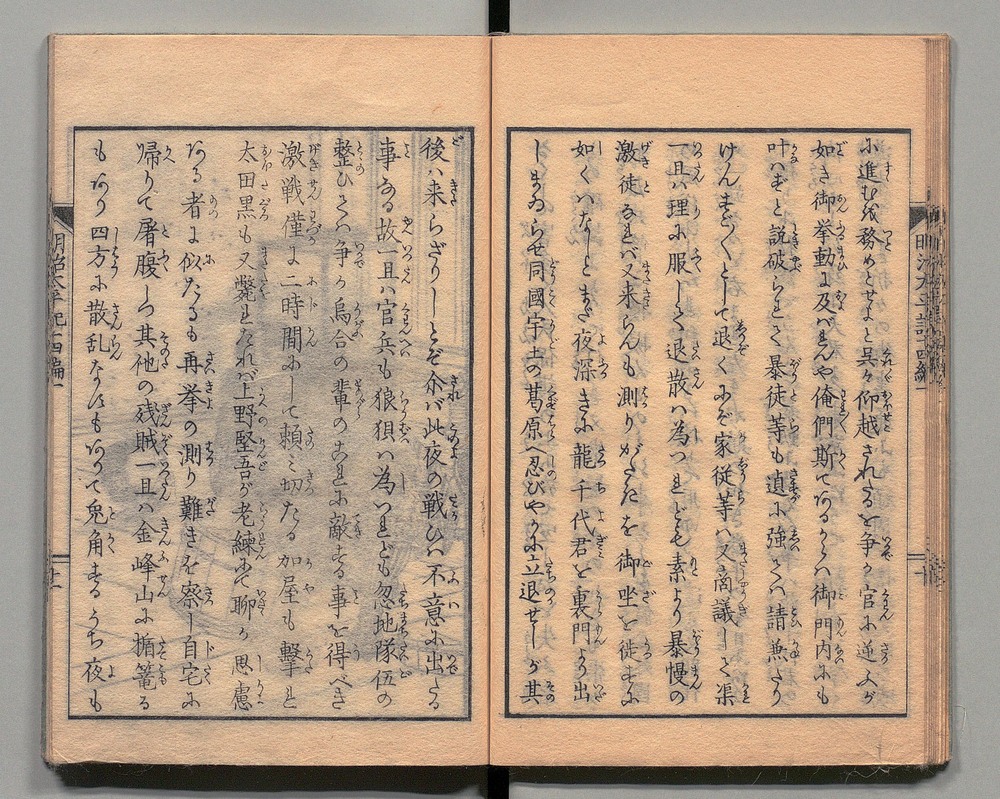 に進むを務めとせよと呉々仰越されるを争か官に逆ふが
如き御挙動に及はんや俺們斯てあるからハ御門内にも
叶はずと説破られさく暴徒等も遉に強くハ請兼たり
けんすごくとして退くにぞ家従等ハ又商議して渠
一旦ハ理に服して退散ハ為つれども素より暴慢の
激徒なれバ又来らんも測りがたきを御坐を徙さふ
如くハなしとまだ夜深きに龍千代君を裏門より出
しまゐらせ同國宇土の葛原へ忍びやかに立退せしが其
後ハ来らざりしとぞ介バ此夜の戦ひハ不意に出たる
事なる故一旦ハ官兵も狼狽ハ為つれども忽地隊伍の
整ひてハ争か烏合の輩のこれに敵する事を得べき
激戦僅に二時間にして頼ミ切たる加屋も撃れ
太田黒も又斃れたれバ上野堅吾が老練にて聊か思慮
ある者に似たるも再挙の測り難きを察し自宅に
帰りて屠腹しつ其他の残賊一旦ハ金峰山に楯篭る
もあり四方に散乱なすもありて兎角するうち夜も
明治太平記十四編一
十一